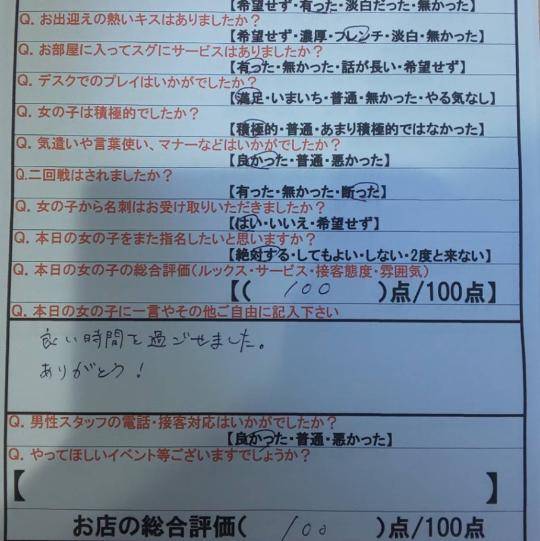 【希望せず・有った・淡白だった・無かった】
Q. お出迎えの熱いキスはありましたか？
【希望せず・濃厚・フレンチ・淡白・無かった】
Q. お部屋に入ってスグにサービスはありましたか？
【有った・無かった・話が長い・希望せず】
Q. デスクでのプレイはいかがでしたか？
【満足・いまいち・普通・無かった・やる気なし】
Q. 女の子は積極的でしたか？
【積極的・普通・あまり積極的ではなかった】
Q. 気遣いや言葉使い、マナーなどはいかがでしたか？
【良かった・普通・悪かった】
Q.二回戦はされましたか？
【有った・無かった・断った】
Q. 女の子から名刺はお受け取りいただきましたか？
【はい・いいえ・希望せず】
Q. 本日の女の子をまた指名したいと思いますか？
【絶対する・してもよい・しない・2度と来ない】
Q. 本日の女の子の総合評価(ルックス・サービス・接客態度・雰囲気)
【( 100 )点/100点】
Q. 本日の女の子に一言やその他ご自由に記入下さい
良い時間を過ごせました。
ありがとう！
Q. 男性スタッフの電話・接客対応はいかがでしたか？
【良かった・普通・悪かった】
Q. やってほしいイベント等ございますでしょうか？
【 】
お店の総合評価( 100 )点/100点